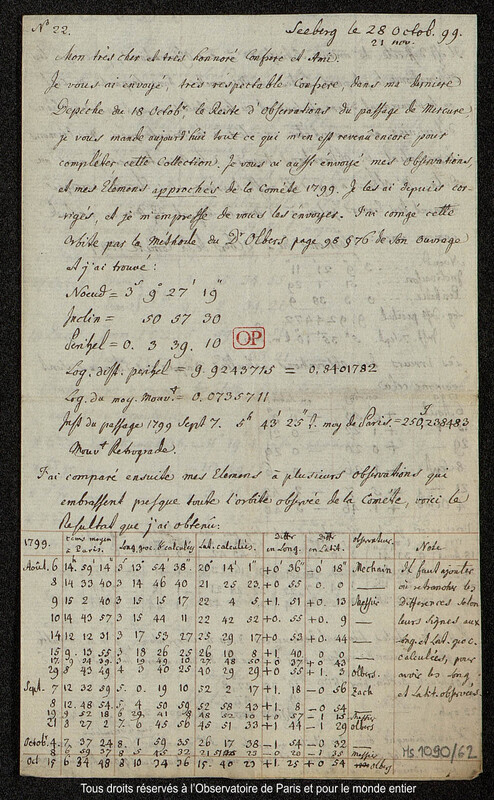 N° 22.
Seeberg le 28 Octob. 99.
21 nov.
Mon très cher et très honnoré Confrere et Ami.
Je vous ai envoyé, très respectable Confrere, dans ma derniere
Depêche du 18 Octobr. le Reste d'Observations du passage de Mercure,
je vous mande aujourd'hui tout ce qui m'en est revenu encore pour
completer cette Collection. Je vous ai aussi envoyé mes Observations,
et mes Elemens approchés de la Cométe 1799. Je les ai depuis cor-
rigés, et je m'empresse de vous les envoyer. J'ai corrigé cette
Orbite par la Methode du Dr Olbers page 98 § 76 de Son Ouvrage
et j'ai trouvé:
Noeud = 3s 9° 27' 19"
Inclin = 50 57 30
Perihel = 0. 3 39. 10
OP
Log. dist. perihel = 9.9243715 = 0.8401782
Log. du moy. Mouvt = 0.0735711
Inst du passage 1799 Sept 7. 5h 43' 25" t. moy de Paris = 250,238483
Mouvt Retrograde.
J'ai comparé ensuite mes Elemens à plusieurs observations qui
embrassent presque toute l'orbite observée de la Cométe, voici le
Resultat que j'ai obtenu.
1799. tems moyen à Paris. Long. géoc. calculées Lat. calculées. Differ en Long. Diff en Latit. observateur. Note
Août. 6 14h 59 14 3s 13° 54' 38" 20° 14' 1" +0' 36" +0' 18" Mechain
8 14 33 40 3 14 46 40 21 25 23 +0. 55 +0. 0 —
9 15 2 40 3 15 15 17 22 4 5 +1. 51 +0. 13 Messier
10 14 43 57 3 15 44 11 22 42 52 +0. 55 +0. 9 —
14 12 12 31 3 17 53 27 25 29 17 +0 53 +0. 44 —
15 9 13 55 3 18 26 25 26 10 8 +1. 40 0. 0 —
17 9 24 39 3 19 49 10 27 48 50 +0 37 +0 43 —
29 8 43 49 4 3 40 25 40 29 29 +0 55 +1. 3 Olbers.
Sept. 7 12 32 59 5. 0. 19 10 52 2 17 +1. 18 −0 56 Zach
8 12 48 54 5. 4 50 59 52 58 43 +1. 8 −0 54
19 9 52 18 6 29. 41 48 52 10 +0 57 −1 15 Messier
21 8 27 2 7. 6 45 56 45 51 33 +1 44 −1 29 olbers
Octob. 4. 7 37 24 8. 1 59 35 26 17 38 −1 54 −0 32
8 6 59 37 8 5 45 32 −0 20 −1 35 messier
Oct 15 6 34 48 8 10 34 36 15. 40 23 +1. 25 +0 54 olbers
Il faut ajouter
ou retrancher les
differences selon
leurs signes aux
long. et Lat. geoc.
calculées, pour
avoir les Long.
et Latit. observées.
Hs 1090/62
Tous droits réservés à l'Observatoire de Paris et pour le monde entier